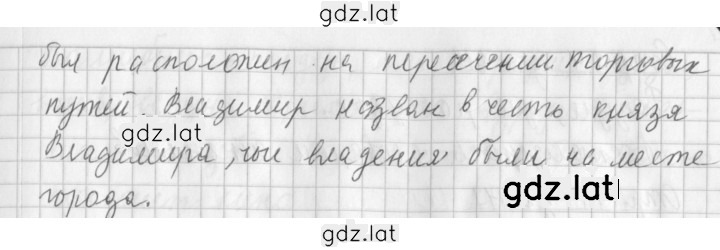 gdz.lat
был расположен на пересечении торговых
путей. Владимир назван в честь князя
gdz.lat
Владимира, чьи владения были на месте
города.
gdz.lat
gdz.lat